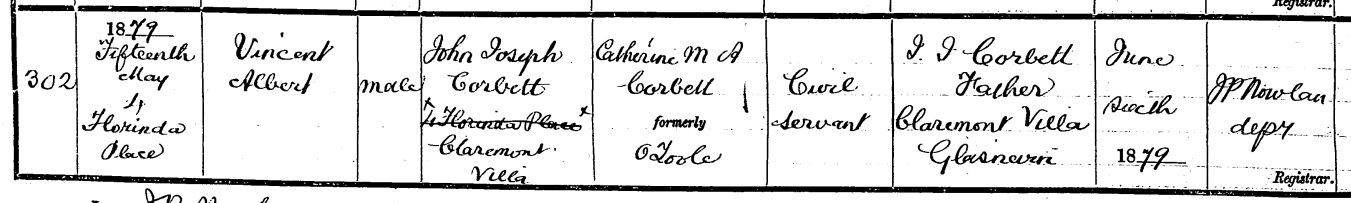 Registrar.
302
1879
Fifteenth
May
Florinda
Place
Vincent
Albert
male
John Joseph
Corbett
Florinda Place
Claremont
Villa
Catherine M A
Corbett
formerly
O'Toole
Civil
servant
J. J Corbett
Father
Claremont Villa
Glasnevin
June
sixth
1879
JP Nowlan
depy
Registrar.